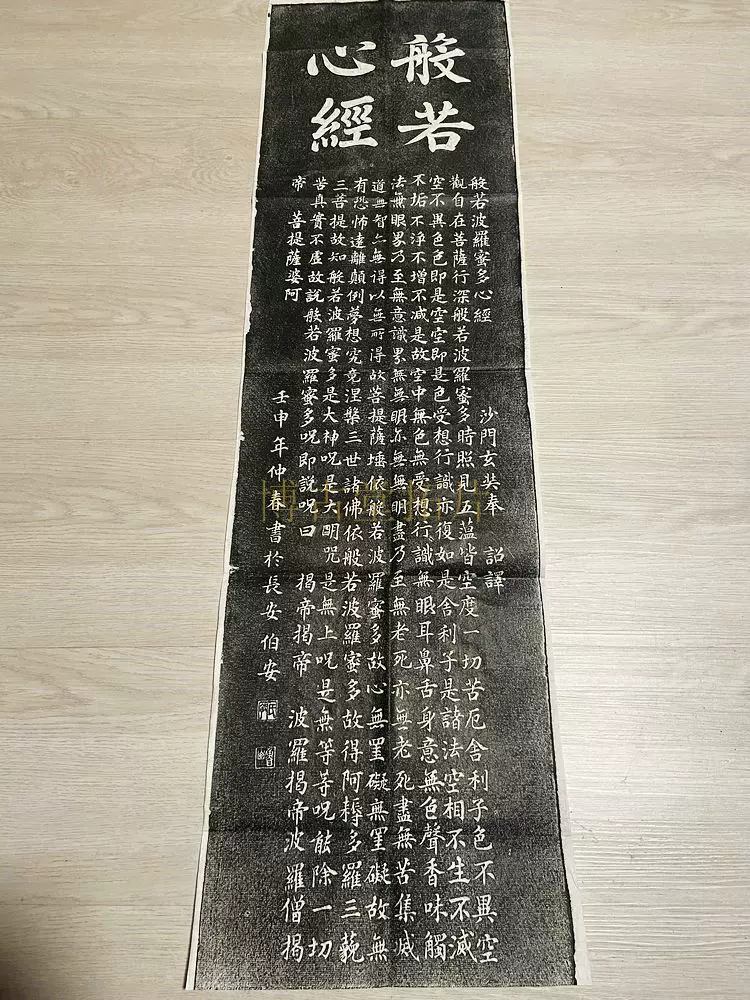 般若
心經
般若波羅蜜多心經 沙門玄奘奉 詔譯
觀自在菩薩行深般若波羅蜜多時照見五蕰皆空度一切苦厄舍利子色不異空
空不異色色即是空空即是色受想行識亦復如是舍利子是諸法空相不生不滅
不垢不淨不增不減是故空中無色無受想行識無眼耳鼻舌身意無色聲香味觸
法無眼界乃至無意識界無無明亦無無明盡乃至無老死亦無老死盡無苦集滅
道無智亦無得以無所得故菩提薩埵依般若波羅蜜多故心無罣礙無罣礙故無
有恐怖遠離顛倒夢想究竟涅槃三世諸佛依般若波羅蜜多故得阿耨多羅三藐
三菩提故知般若波羅蜜多是大神呪是大明咒是無上呪是無等等呪能除一切
苦真實不虛故説般若波羅蜜多呪即説呪曰 揭帝揭帝 波羅揭帝波羅僧揭
帝 菩提薩婆阿
壬申年仲春書於長安伯安